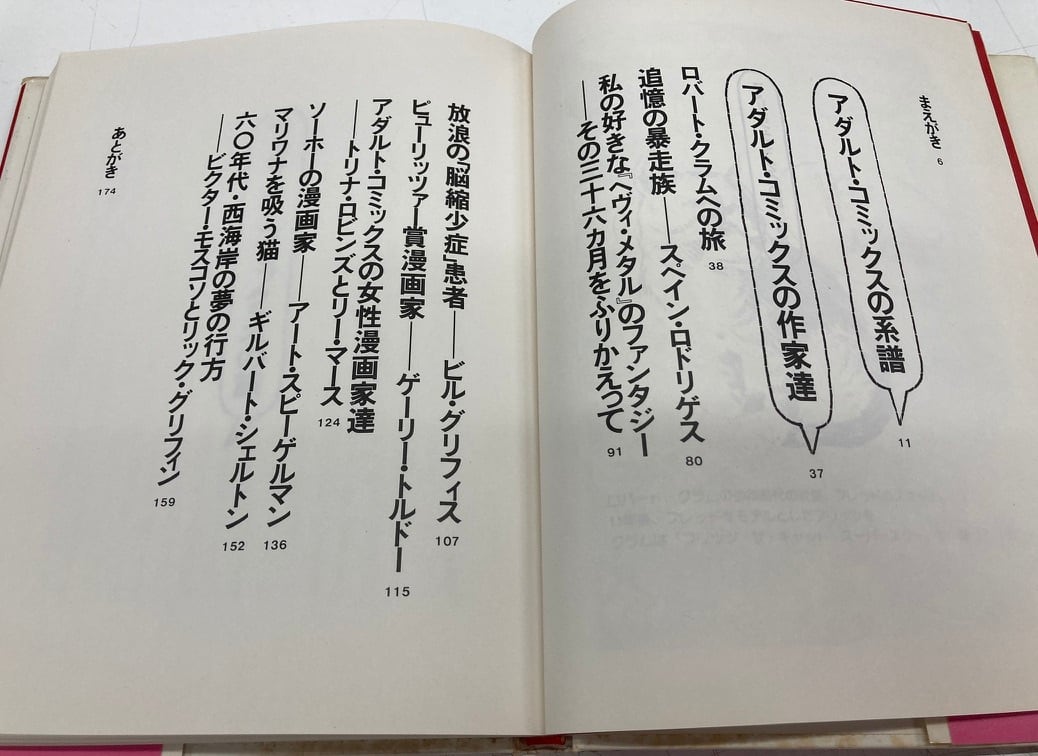 まえがき 6
アダルト・コミックスの系譜 11
アダルト・コミックスの作家達 37
ロバート・クラムへの旅 38
追憶の暴走族――スペイン・ロドリゲス 80
私の好きな『ヘヴィ・メタル』のファンタジー
――その三十六カ月をふりかえって 91
放浪の「脳縮少症」患者――ビル・グリフィス 107
ピューリッツァー賞漫画家――ゲーリー・トルドー 115
アダルト・コミックスの女性漫画家達
――トリナ・ロビンズとリー・マース 124
ソーホーの漫画家――アート・スピーゲルマン 136
マリワナを吸う猫――ギルバート・シェルトン 152
六〇年代・西海岸の夢の行方
――ビクター・モスコソとリック・グリフィン 159
あとがき 174